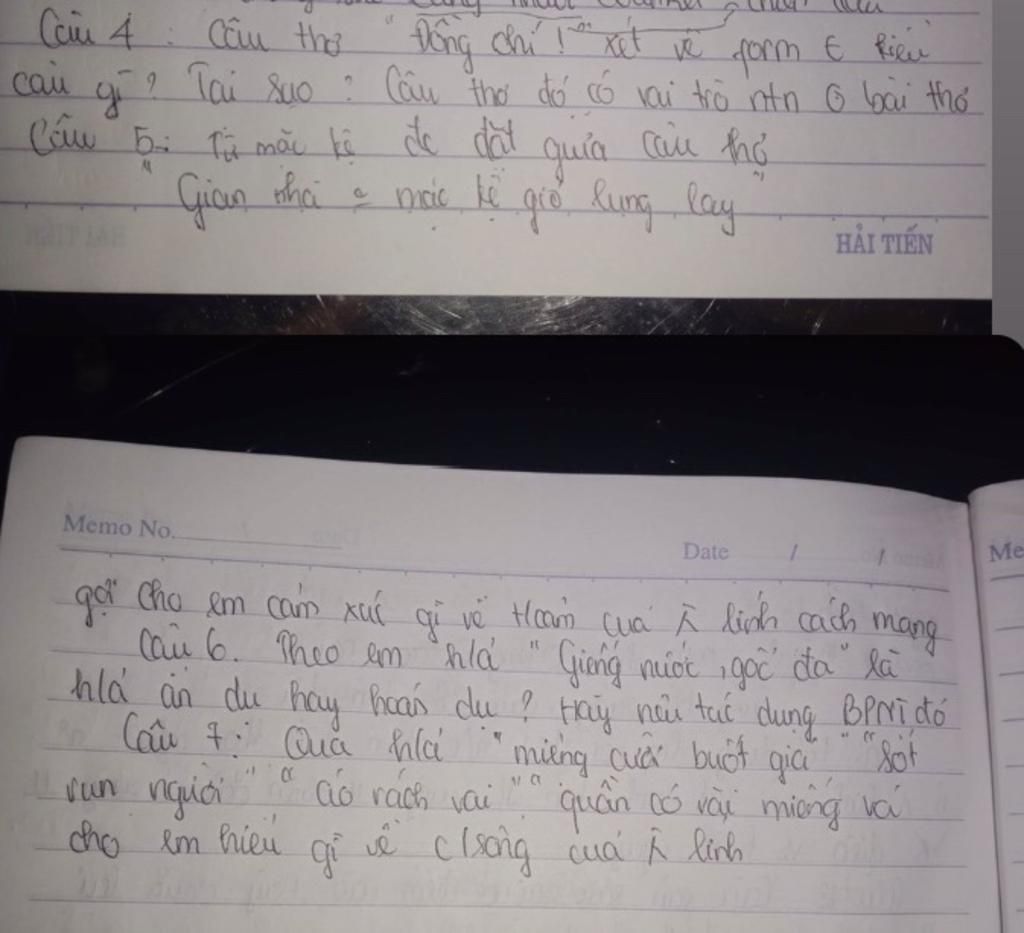 Câu 4 : Câu thơ "Đồng chí !" xét về form E kiểu
câu gì ? Tại sao ? Câu thơ đó có vai trò ntn ô bài thơ
Câu 5: Từ mặc kệ đc đặt giữa câu thơ
"Gian nhà mặc kệ gió lung lay"
HẢI TIẾN
Memo No.
Date / /
Me
gợi cho em cảm xúc gì về t/cảm của lính cách mạng
Câu 6. Theo em h/ả "Giếng nước, gốc đa" là
h/ả ẩn dụ hay hoán dụ ? Hãy nêu tác dụng BPNT đó
Câu 7: Qua h/ả "miệng cười buốt giá" "Sốt
run người" "áo rách vai" "quần có vài miếng vá
cho em hiểu gì về c/sống của lính